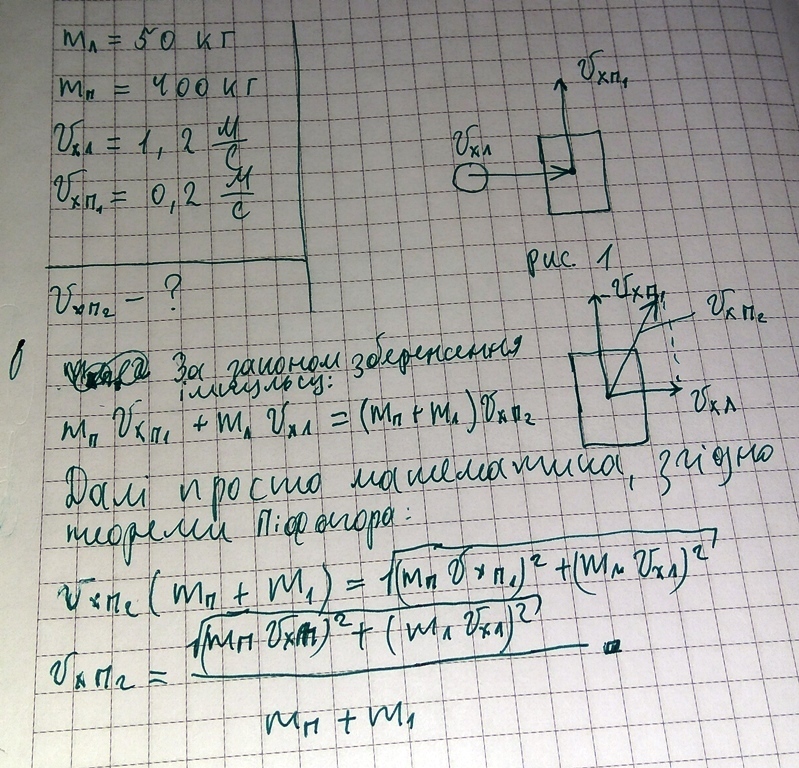 mл = 50 кг
mп = 400 кг
Vхл = 1,2 м/с
Vхп₁ = 0,2 м/с
Vхп₂ - ?
Vхп₁
Vхл
рис 1
Vхп₁
Vхп₂
Vхл
За законом збереження
імпульсу:
mп Vхп₁ + mл Vхл = (mп + mл) Vхп₂
Далі просто математика, згідно
теореми Піфагора:
Vхп₂ (mп + m1) = √((mп Vхп₁)² + (mл Vхл)²)
Vхп₂ = √((mп Vхп)² + (mл Vхл)²) / (mп + m1)